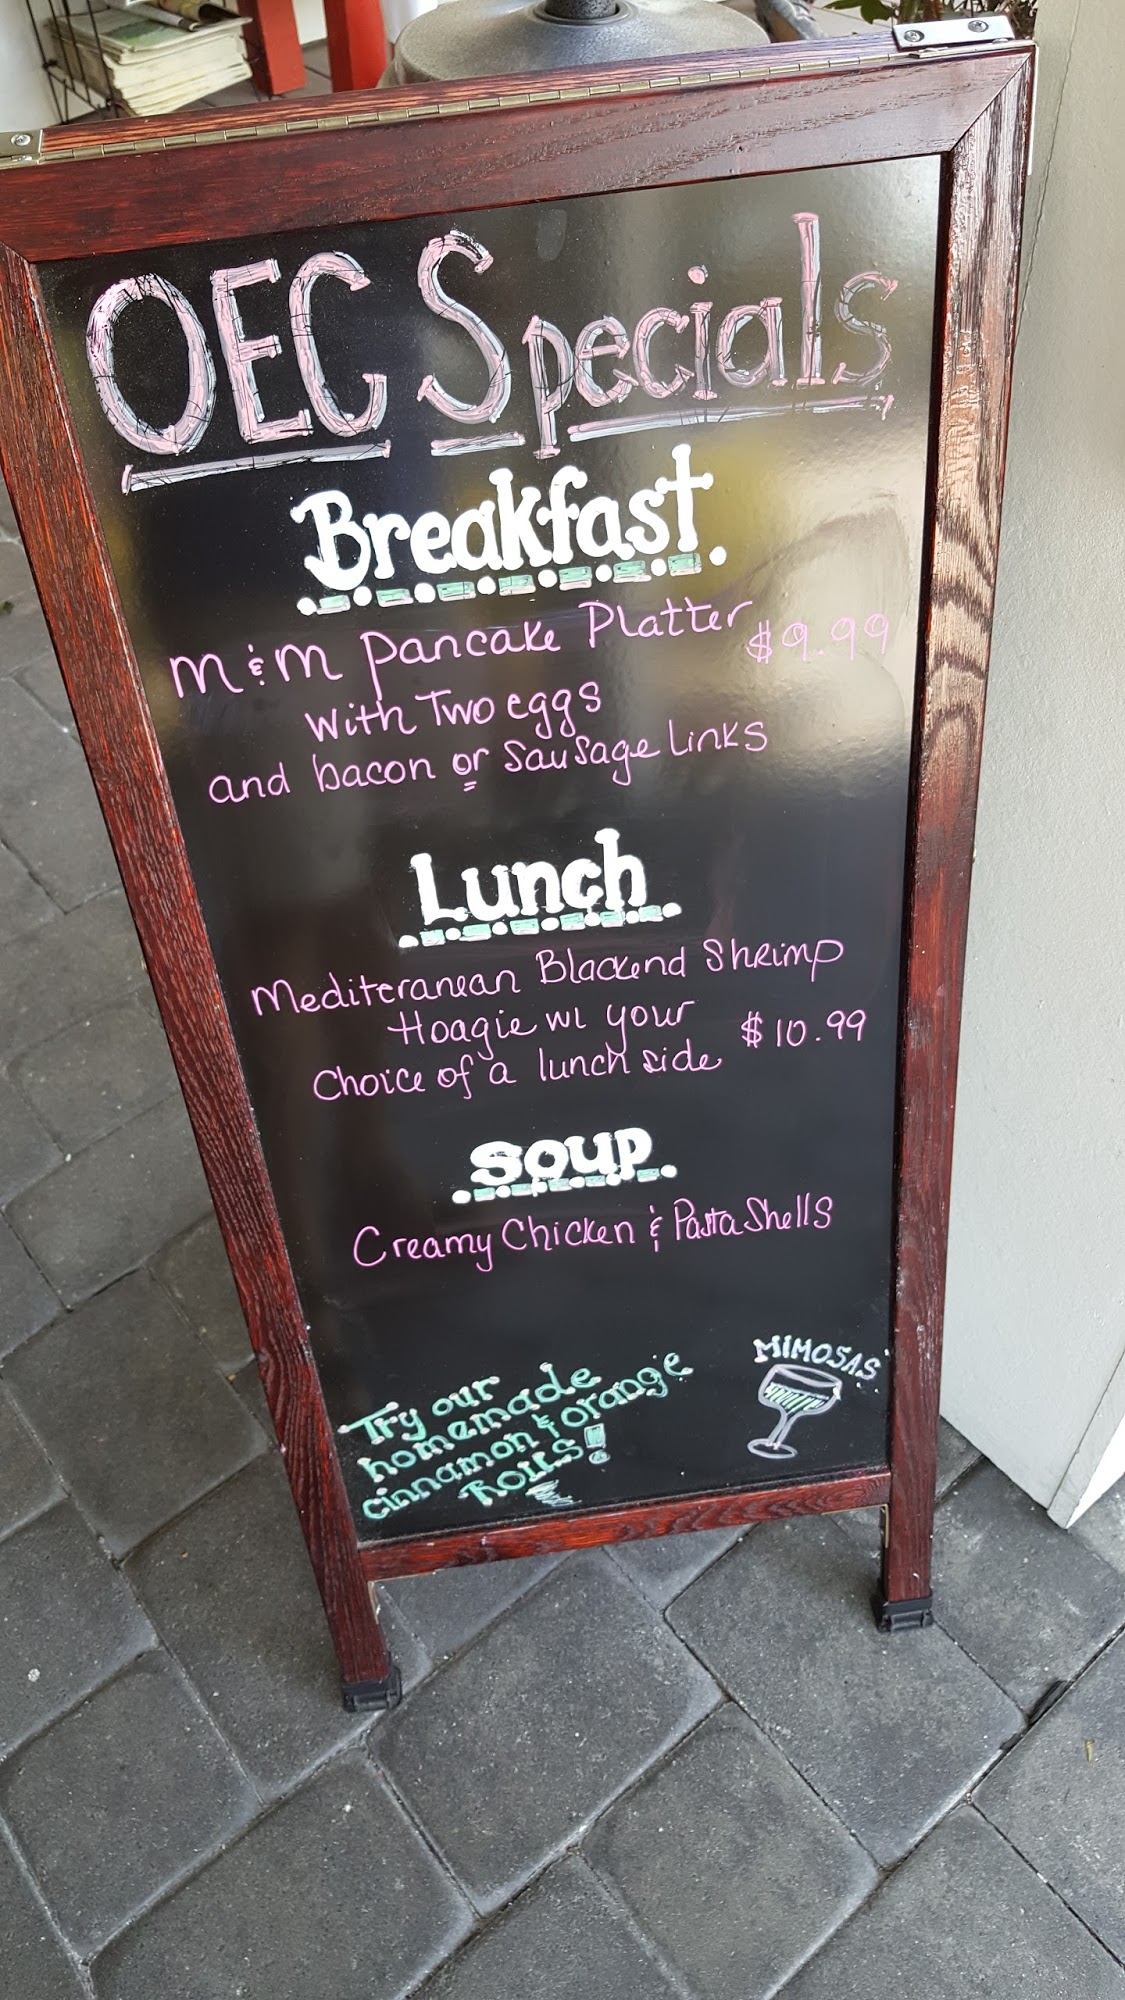 OEC Specials
Breakfast
M & M Pancake Platter
$9.99
with Two eggs
and bacon or Sausage Links
Lunch
Mediteranean Blackend Shrimp
Hoagie w/ your
$10.99
Choice of a lunch side
Soup
Creamy Chicken & Pasta Shells
MIMOSAS
Try our
homemade
cinnamon & orange
ROLLS!